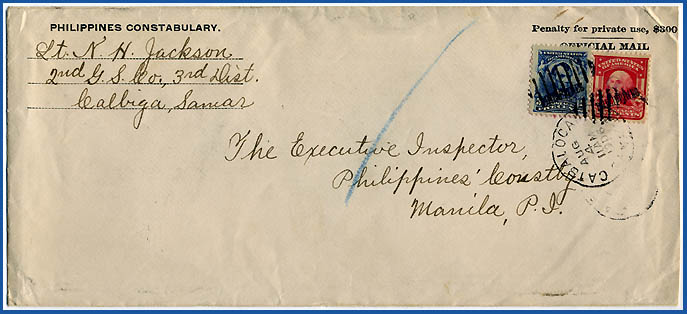 PHILIPPINES CONSTABULARY.
Lt. N. H. Jackson
2nd G. S. Co., 3rd Dist.
Calbiga, Samar
Penalty for private use, $300
OFFICIAL MAIL
The Executive Inspector,
Philippines' Consty
Manila, P. I.
CATBALOGAN
AUG
11 AM